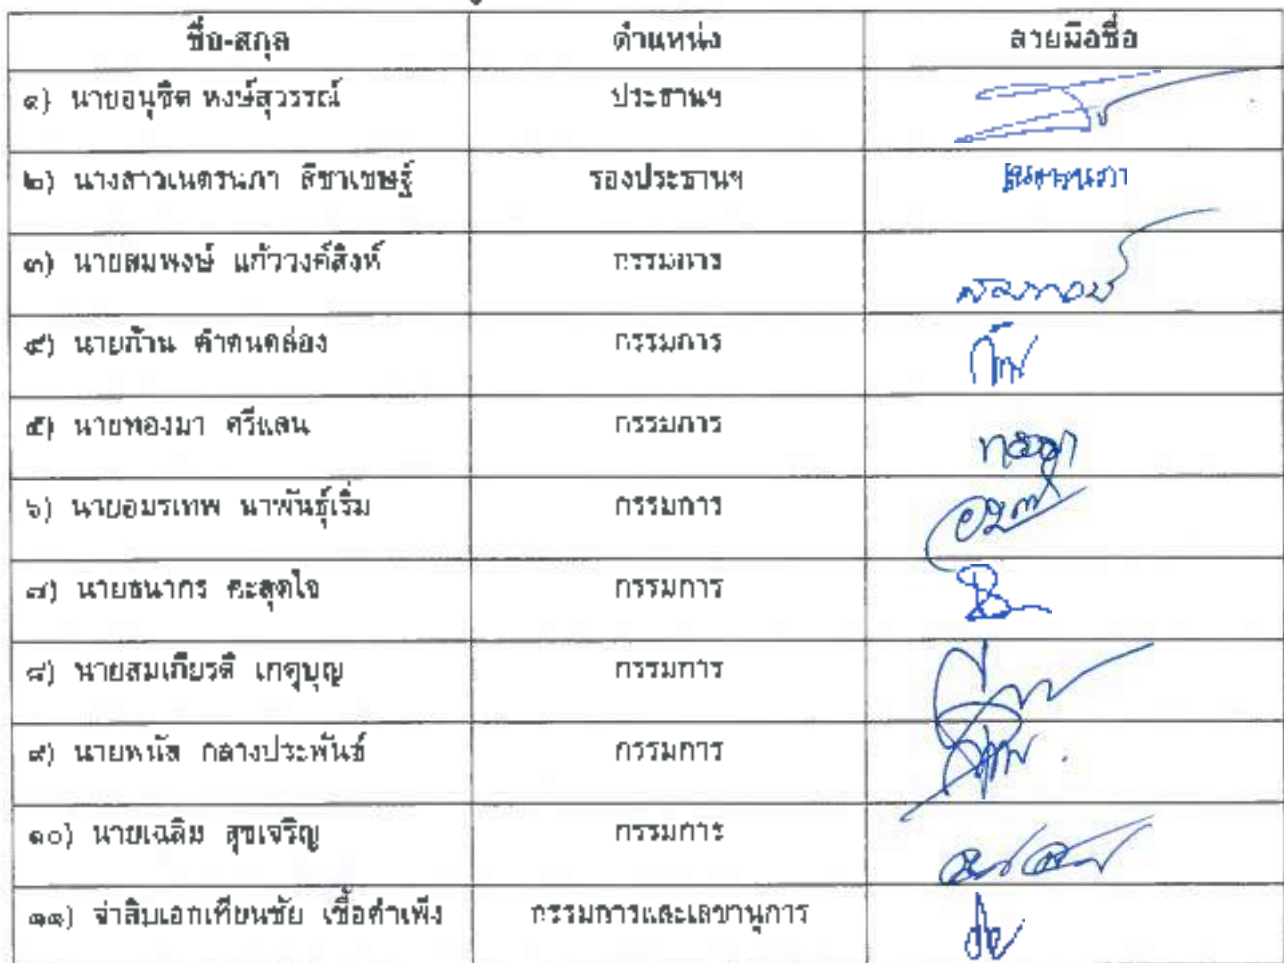 ชื่อ-สกุล ตำแหน่ง ลายมือชื่อ
๑) นายอนุชิต หงษ์สุวรรณ์ ประธานฯ
๒) นางสาวเนตรนภา ลีชาเชษฐ์ รองประธานฯ
๓) นายสมพงษ์ แก้ววงค์สิงห์ กรรมการ สมพงษ์
๔) นายก้าน คำตนคล่อง กรรมการ
๕) นายทองมา ศรีแลน กรรมการ ทองมา
๖) นายอมรเทพ นาพันธุ์เริ่ม กรรมการ
๗) นายธนากร คะสุดใจ กรรมการ
๘) นายสมเกียรติ เกตุบุญ กรรมการ
๙) นายพนัส กลางประพันธ์ กรรมการ
๑๐) นายเฉลิม สุขเจริญ กรรมการ
๑๑) จ่าสิบเอกเทียนชัย เชื้อคำเพ็ง กรรมการและเลขานุการ